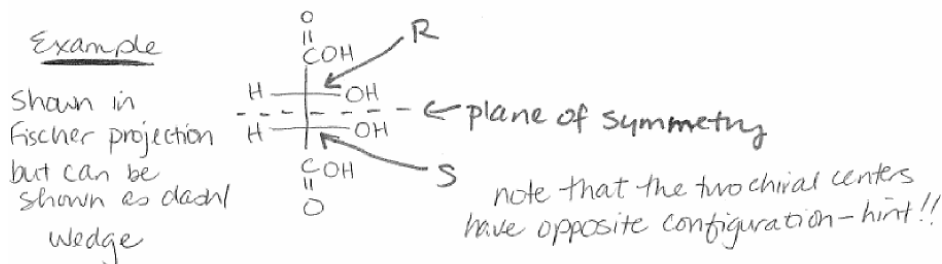 Example
Shown in
Fischer projection
but can be
shown as dash/
wedge
O
COH
R
H OH
plane of symmetry
H OH
COH
S
O
note that the two chiral centers
have opposite configuration-hint!!